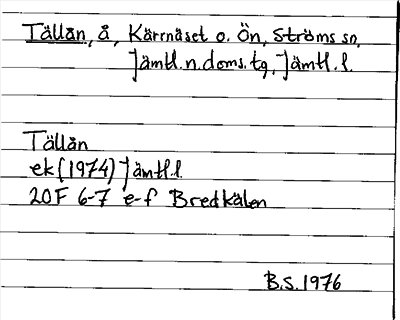 Tällån, å, Kärrnäset o. Ön, Ströms sn,
Jämtl.n.doms.tg, Jämtl.l.
Tällån
ek(1974) Jämtl.l
20F 6-7 e-f Bredkälen
B.S.1976